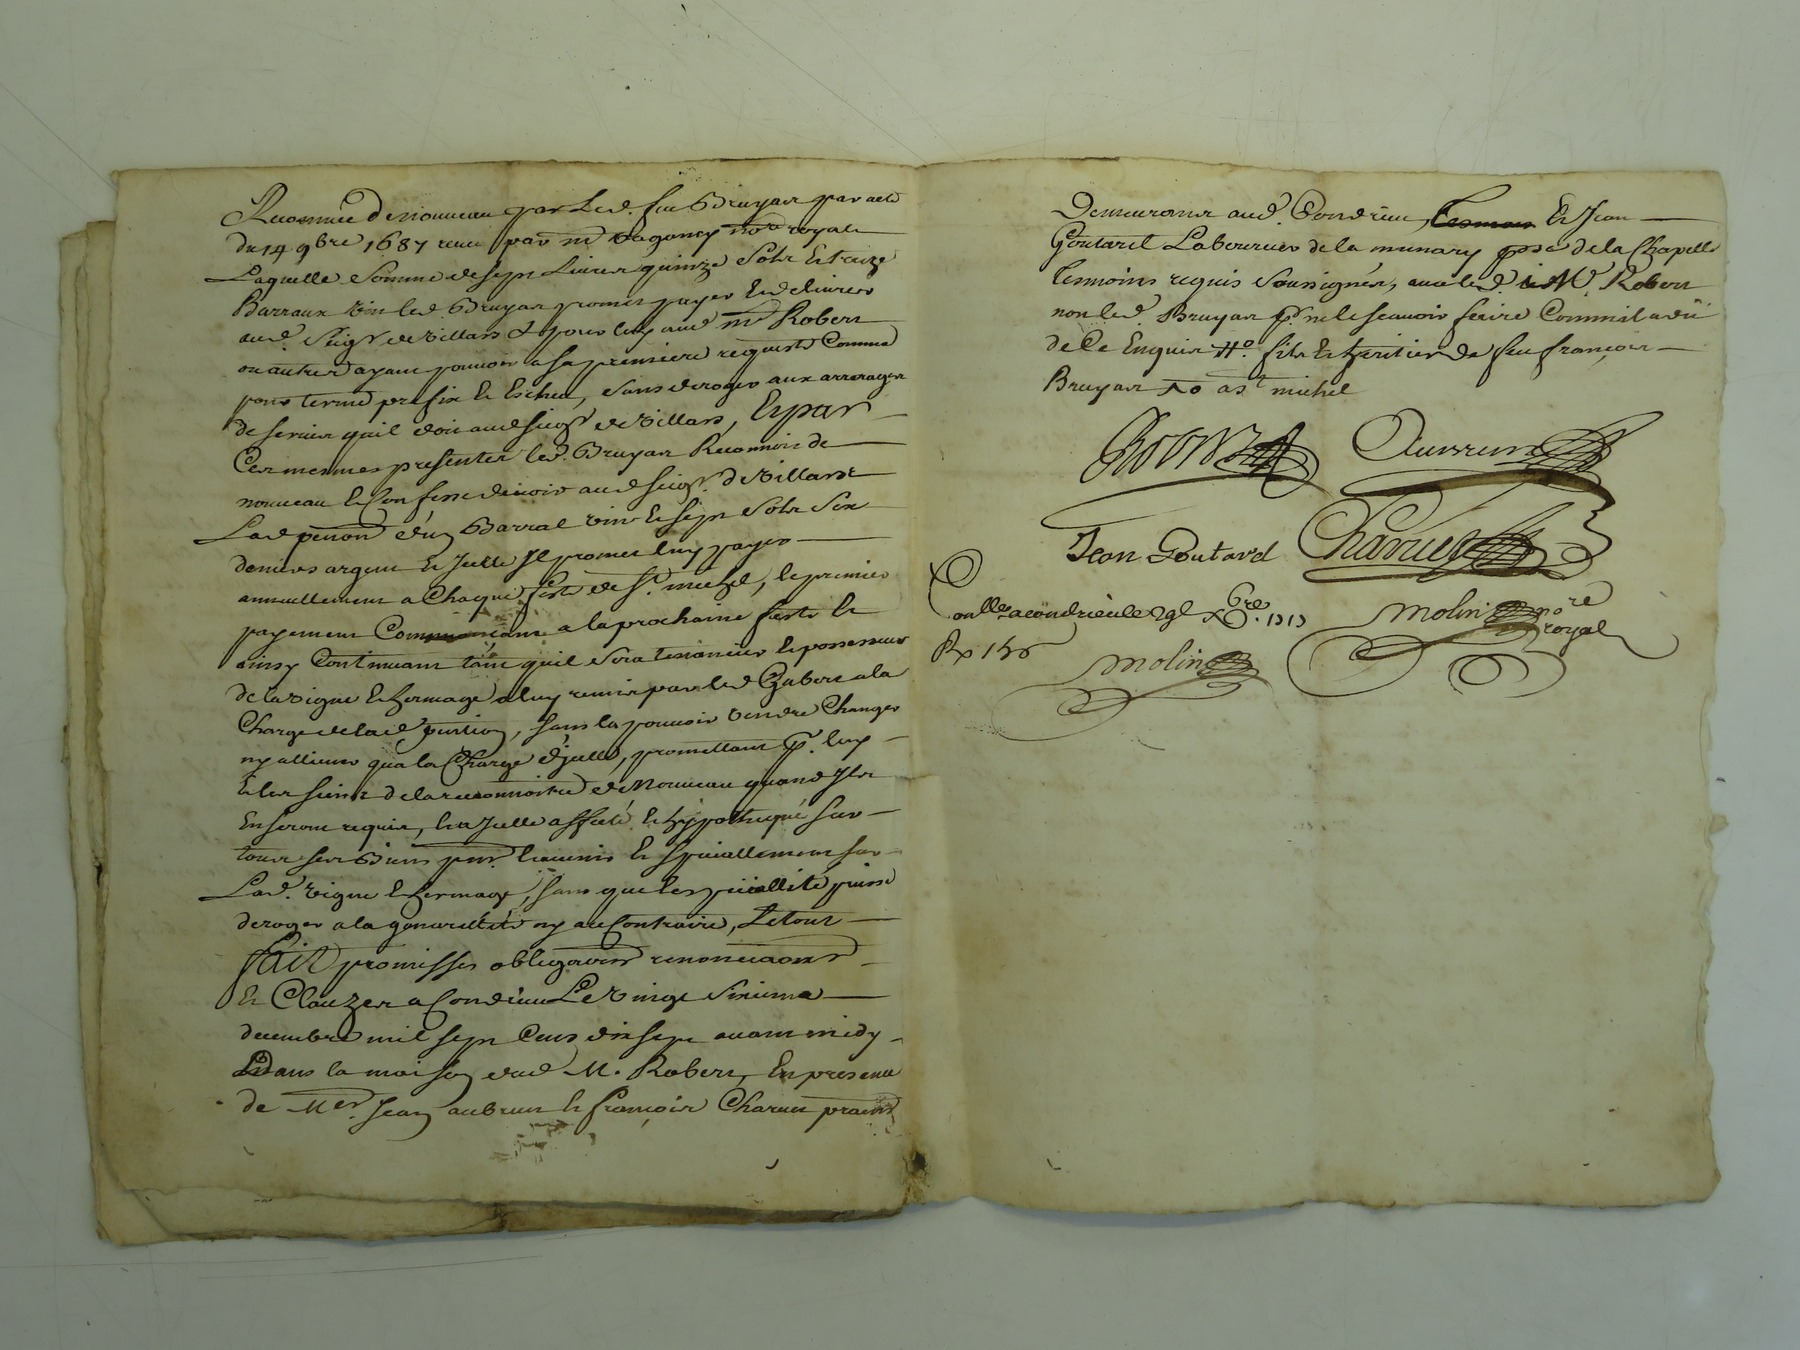 Reconnüe de nouveau par Led. feu Bruyas par acte
du 14 9bre 1687 receu par me Dagoney nore royal
Laquelle somme de sept Livres quinze sols et treize
Barraux vin led. Bruyas promet payer et delivrer
aud. Seigr de villars & pour luy aud. mr Robert
ou autres ayant pouvoir a sa premiere requeste Comme
pour terme prefix et escheu, sans deroger aux arrerages
de servis quil doit aud seigr de villars, Et par
Ces mesmes presentes led. Bruyas Reconnois de
nouveau et Confesse devoir aud seigr. de villars
Lad pention d'un Barral vin et sept sols six
deniers argent et Jcelle Jl promet luy payer
annuellement a Chaque feste de st. michel, le premier
payement Commençant a la prochaine feste et
ainsy Continuant tant quil sera tenancier et possesseur
de la vigne et hermage a luy remis par led Chabert a la
Charge de lad. pention, sans la pouvoir vendre Changer
ny alliener qua la Charge d'jcelle, promettant pr. luy
et les siens de la reconnoitre de Nouveau quand Jls
En seront requis, et a Jcelle affecté et hypothequé sur
tous ses Biens pnts. et avenir et specialement sur
Lad. vigne et hermage, sans que la speciallité puisse
deroger a la generallité ny au Contraire, Le tout
fait promisses obligaõns renonciaõns
Et Clauzes a Condrieu Le vingt sixieme
decembre mil sept Cens dix sept avant midy
Dans la maison dud M. Robert, En presence
de Mes. Jean aubrun et françois Charvet pratns
Demeurants aud. Condrieu, Et Jean
Goutard Laboureur de la munary psse de la Chapelle
tesmoins requis soussignés, avec led. Mr. Robert
non led. Bruyas pr. ne le scavoir faire Comm il a dit
de Ce Enquis fils et heritier de feu françois
Bruyas st michel
Robert
Jean Goutard Charvet
Conlle a condrieu le xbre. 1717
Molin nore
royal
Molin